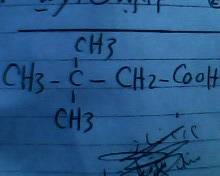 CH3
CH3 - C - CH2 - COOH
CH3